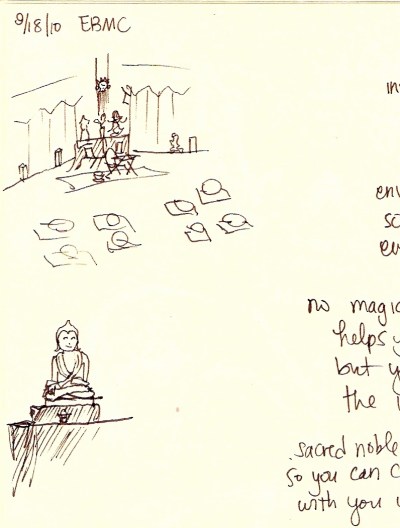 9/18/10 EBMC
in
env
so
ev
no magic
helps y
but y
the
sacred noble
so you can c
with you